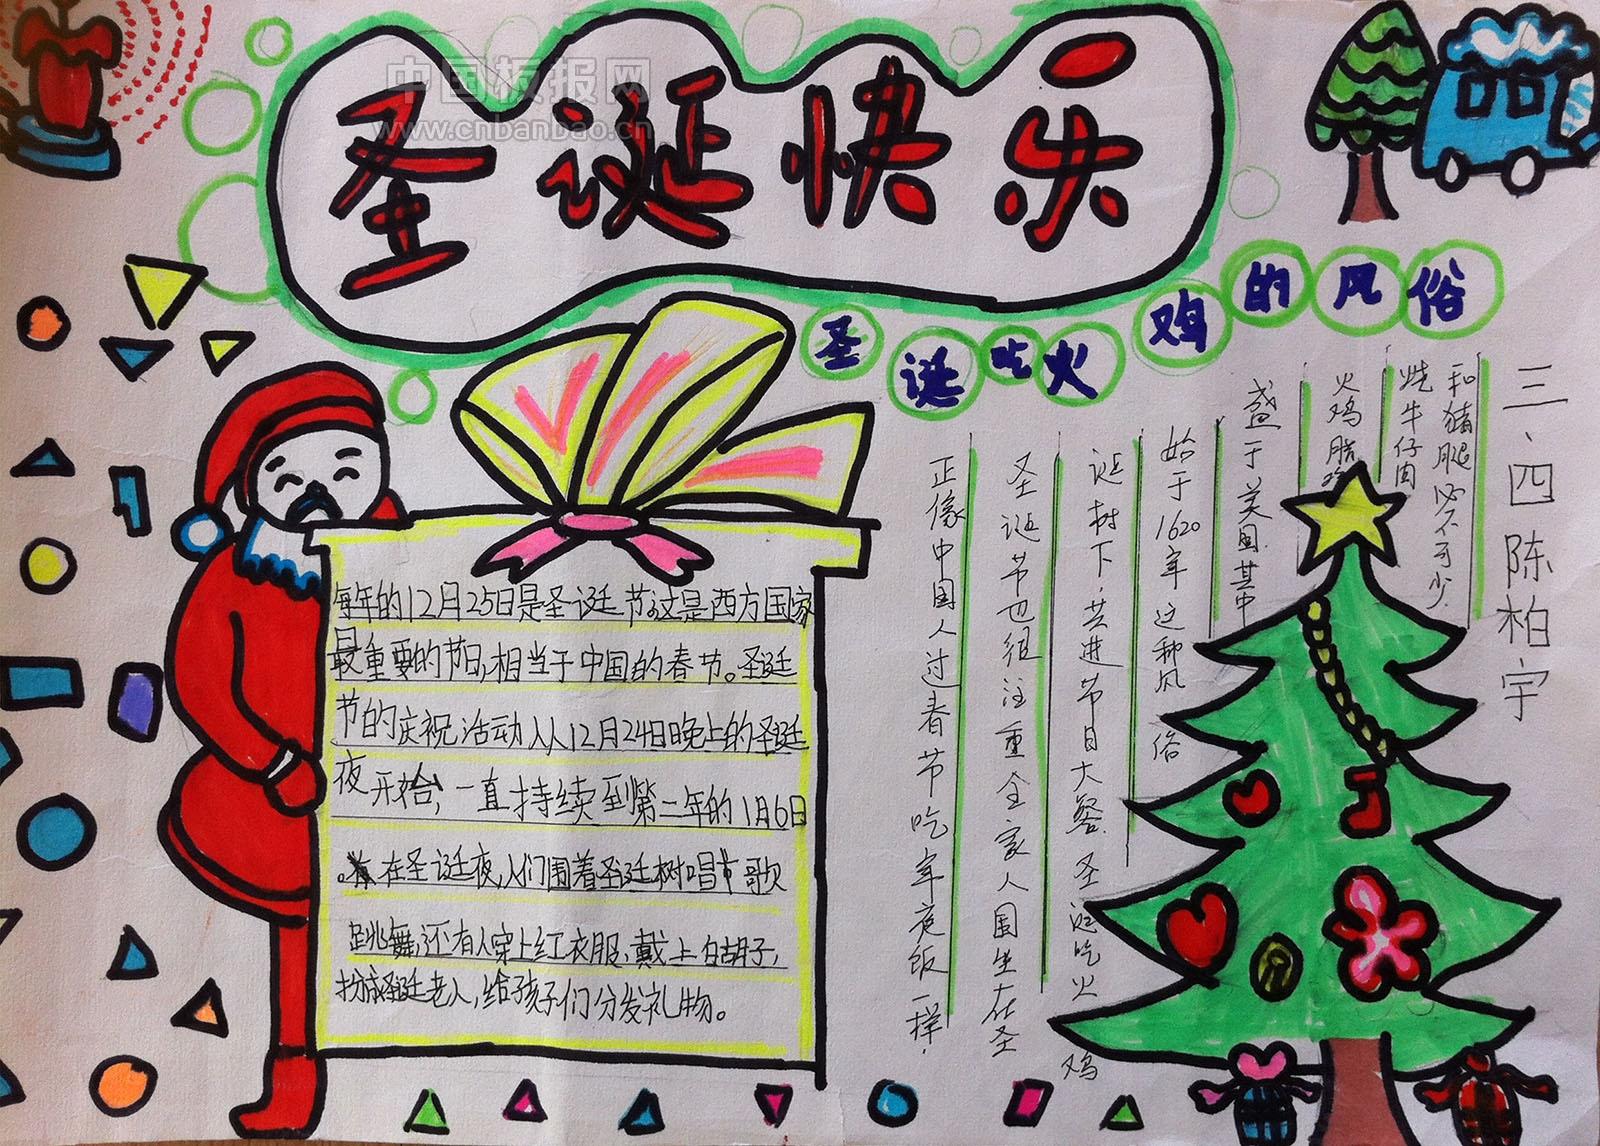 中国板报网
www.cnbanbao.cn
圣诞快乐
圣诞吃火鸡的风俗
三、四 陈柏宇
每年的12月25日是圣诞节。这是西方国家
最重要的节日,相当于中国的春节。圣诞
节的庆祝活动从12月24日晚上的圣诞
夜开始,一直持续到第二年的1月6日
。在圣诞夜,人们围着圣诞树唱节歌
跳舞,还有人穿上红衣服、戴上白胡子,
扮成圣诞老人,给孩子们分发礼物。
正像中国人过春节吃年夜饭一样.
圣诞节也很注重全家人围坐在圣
诞树下,共进节日大餐.圣诞吃火鸡
始于1620年 这种风俗
盛于美国.其中
火鸡腊鸡
烧牛仔肉
和猪腿必不可少.